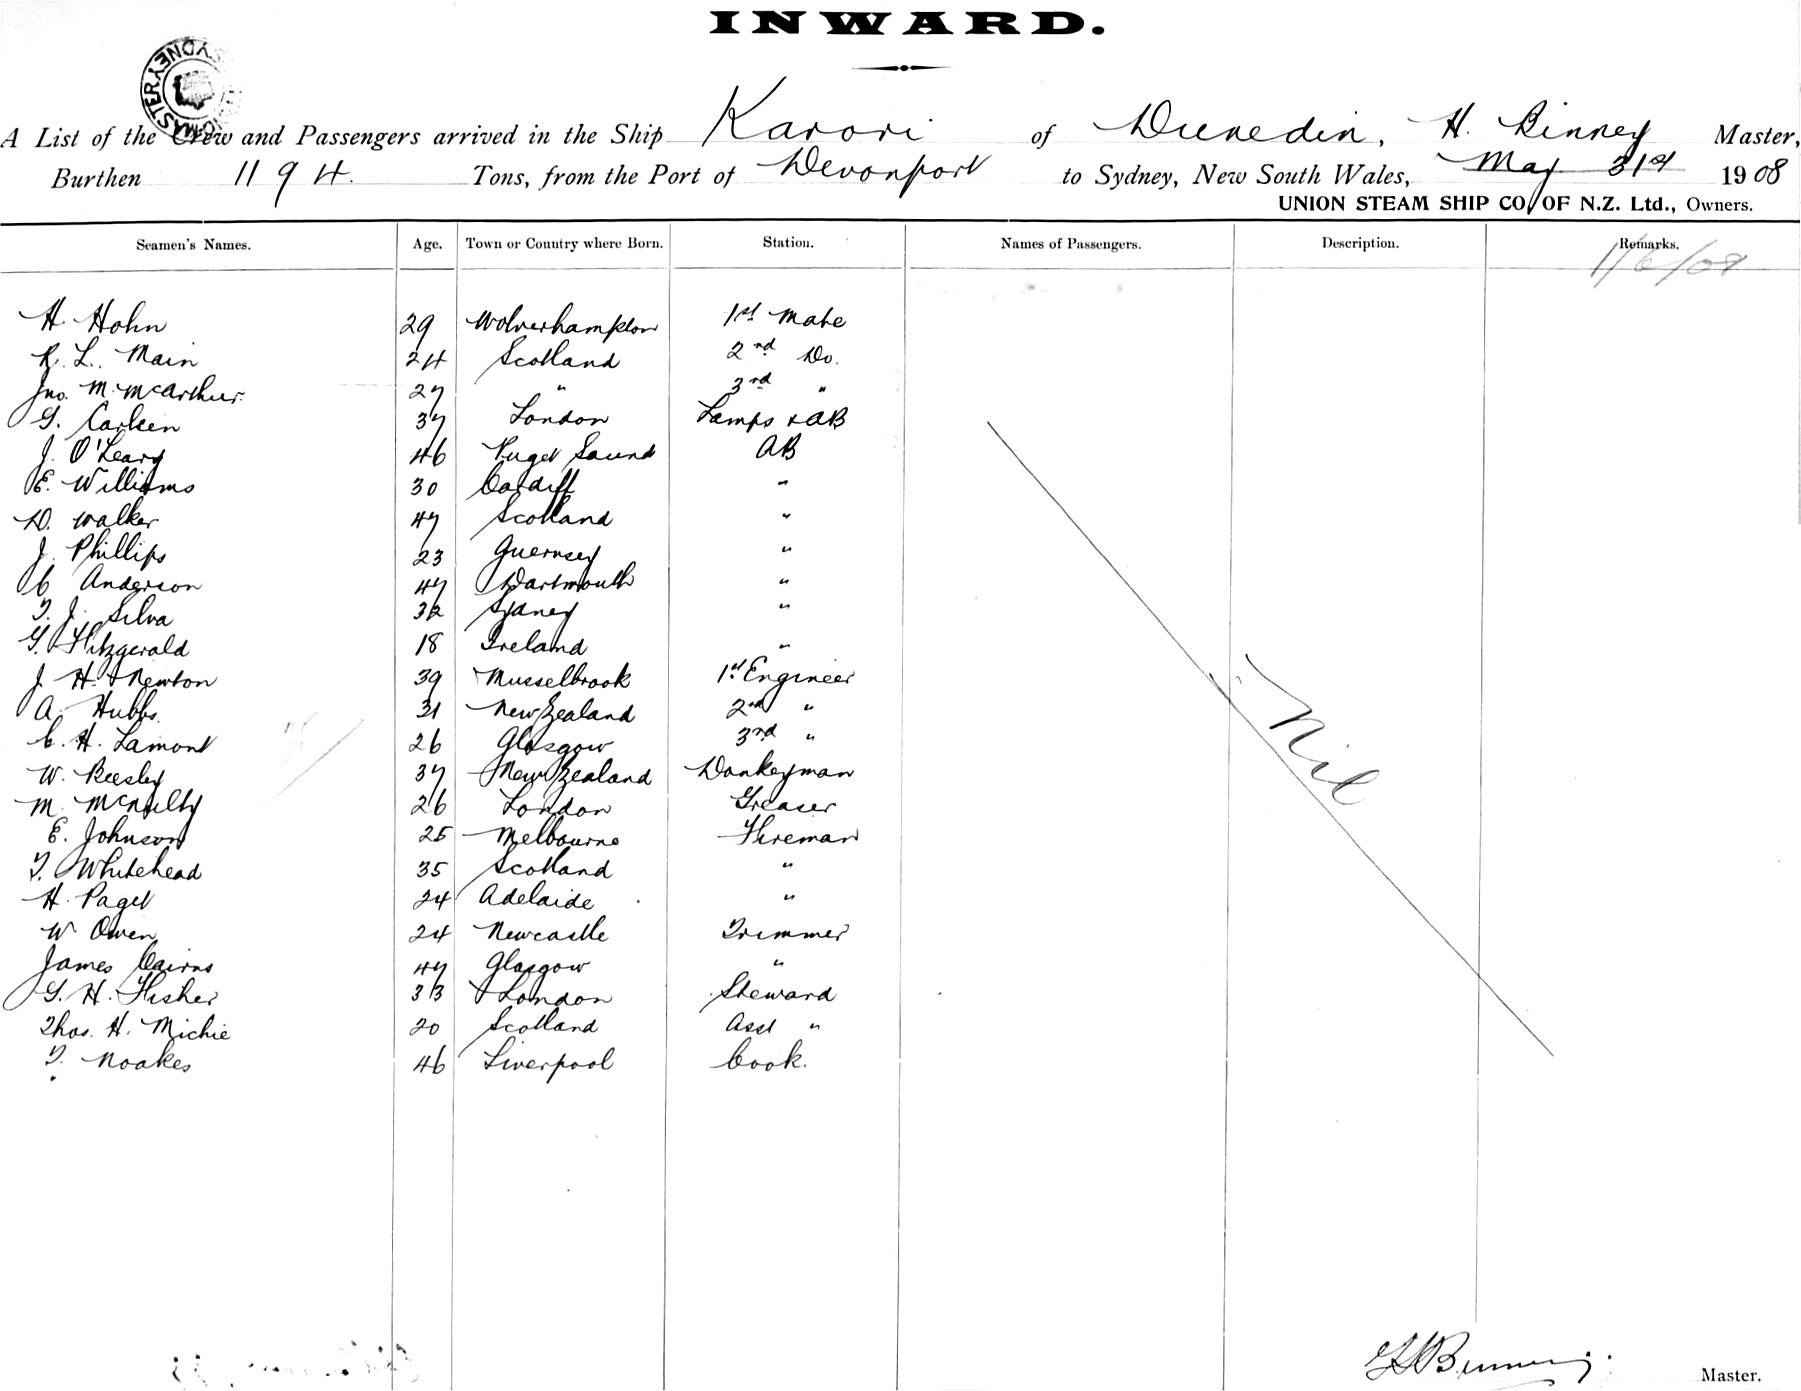 INWARD.
A List of the Crew and Passengers arrived in the Ship Karori of Dunedin, H. Binney Master,
Burthen 1194. Tons, from the Port of Devonport to Sydney, New South Wales, May 31st 1908
UNION STEAM SHIP CO. OF N.Z. Ltd., Owners.
Seamen's Names. Age. Town or Country where Born. Station. Names of Passengers. Description. Remarks.
1/6/08
H. Hohn 29 Wolverhampton 1st Mate
R. L. Main 24 Scotland 2nd Do.
Jno. M. McArthur. 27 " 3rd "
G. Carleen 37 London Lamps & AB
J. O'Leary 46 Puget Sound AB
E. Williams 30 Cardiff "
D. Walker 47 Scotland "
J. Phillips 23 Guernsey "
C Anderson 47 Dartmouth "
T. J. Silva 32 Sydney "
G. Fitzgerald 18 Ireland "
J. H. Newton 39 Musselbrook 1st Engineer
A. Hubbs. 31 New Zealand 2nd "
C. H. Lamont 26 Glasgow 3rd "
W. Beesley 37 New Zealand Donkeyman
M. McNulty 26 London Greaser
E. Johnson 25 Melbourne Fireman
T. Whitehead 35 Scotland "
H. Paget 24 Adelaide "
W Owen 24 Newcastle Trimmer
James Cairns 47 Glasgow "
G. H. Fisher 33 London Steward
Thos. H. Michie 20 Scotland Asst "
T. Noakes 46 Liverpool Cook.
Nil
Binney
Master.